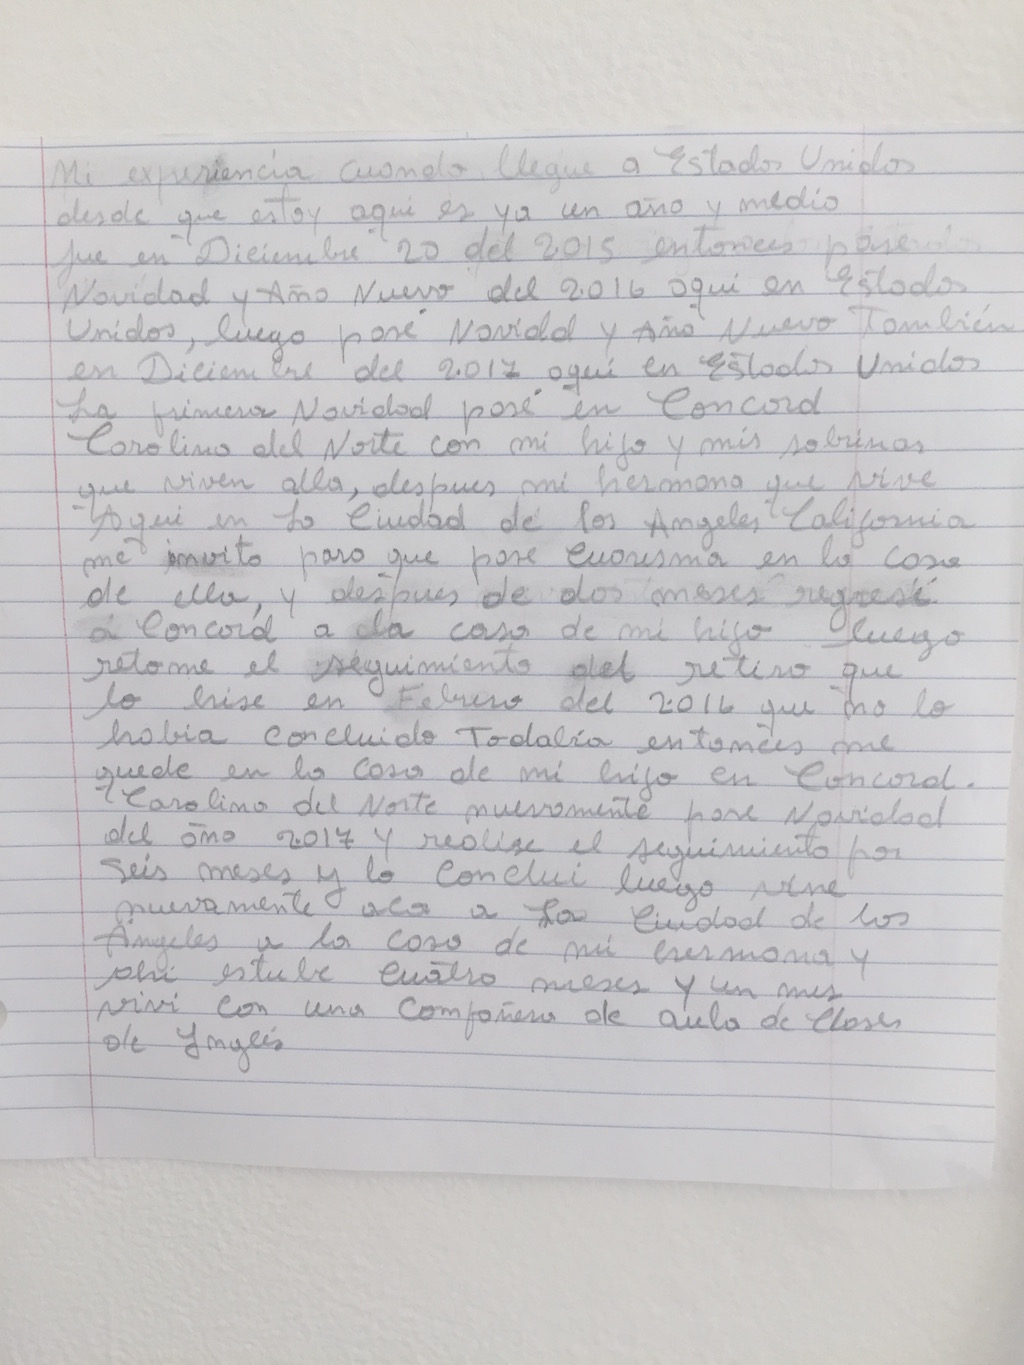 Mi experiencia cuando llegue a Estados Unidos
desde que estoy aqui es ya un año y medio
fue en Diciembre 20 del 2015 entonces pase
Navidad y Año Nuevo del 2016 aqui en Estados
Unidos, luego pasé Navidd y Año Nuevo También
en Diciembre del 2017 aqui en Estados Unidos
La primera Navidad pasé en Concord
Carolina del Norte con mi hijo y mis sobrinas
que viven alla, despues mi hermana que vive
Aqui en La Ciudad de los Angeles California
me invito para que pase Cuaresma en la casa
de ella, y despues de dos meses regresé
a Concord a la casa de mi hijo luego
retome el seguimiento del retiro que
lo hise en Febrero del 2016 que no lo
habia concluido Todalia entonces me
quede en la casa de mi hijo en Concord.
Carolina del Norte nuevamente pase Navidad
del año 2017 y realise el seguimiento por
seis meses y lo Conclui luego vine
nuevamente aca a La Ciudad de los
Ángeles a la casa de mi hermana y
ahi estube Cuatro meses y un mes
vivi con una Compañera de aula de Clases
de Ynglés